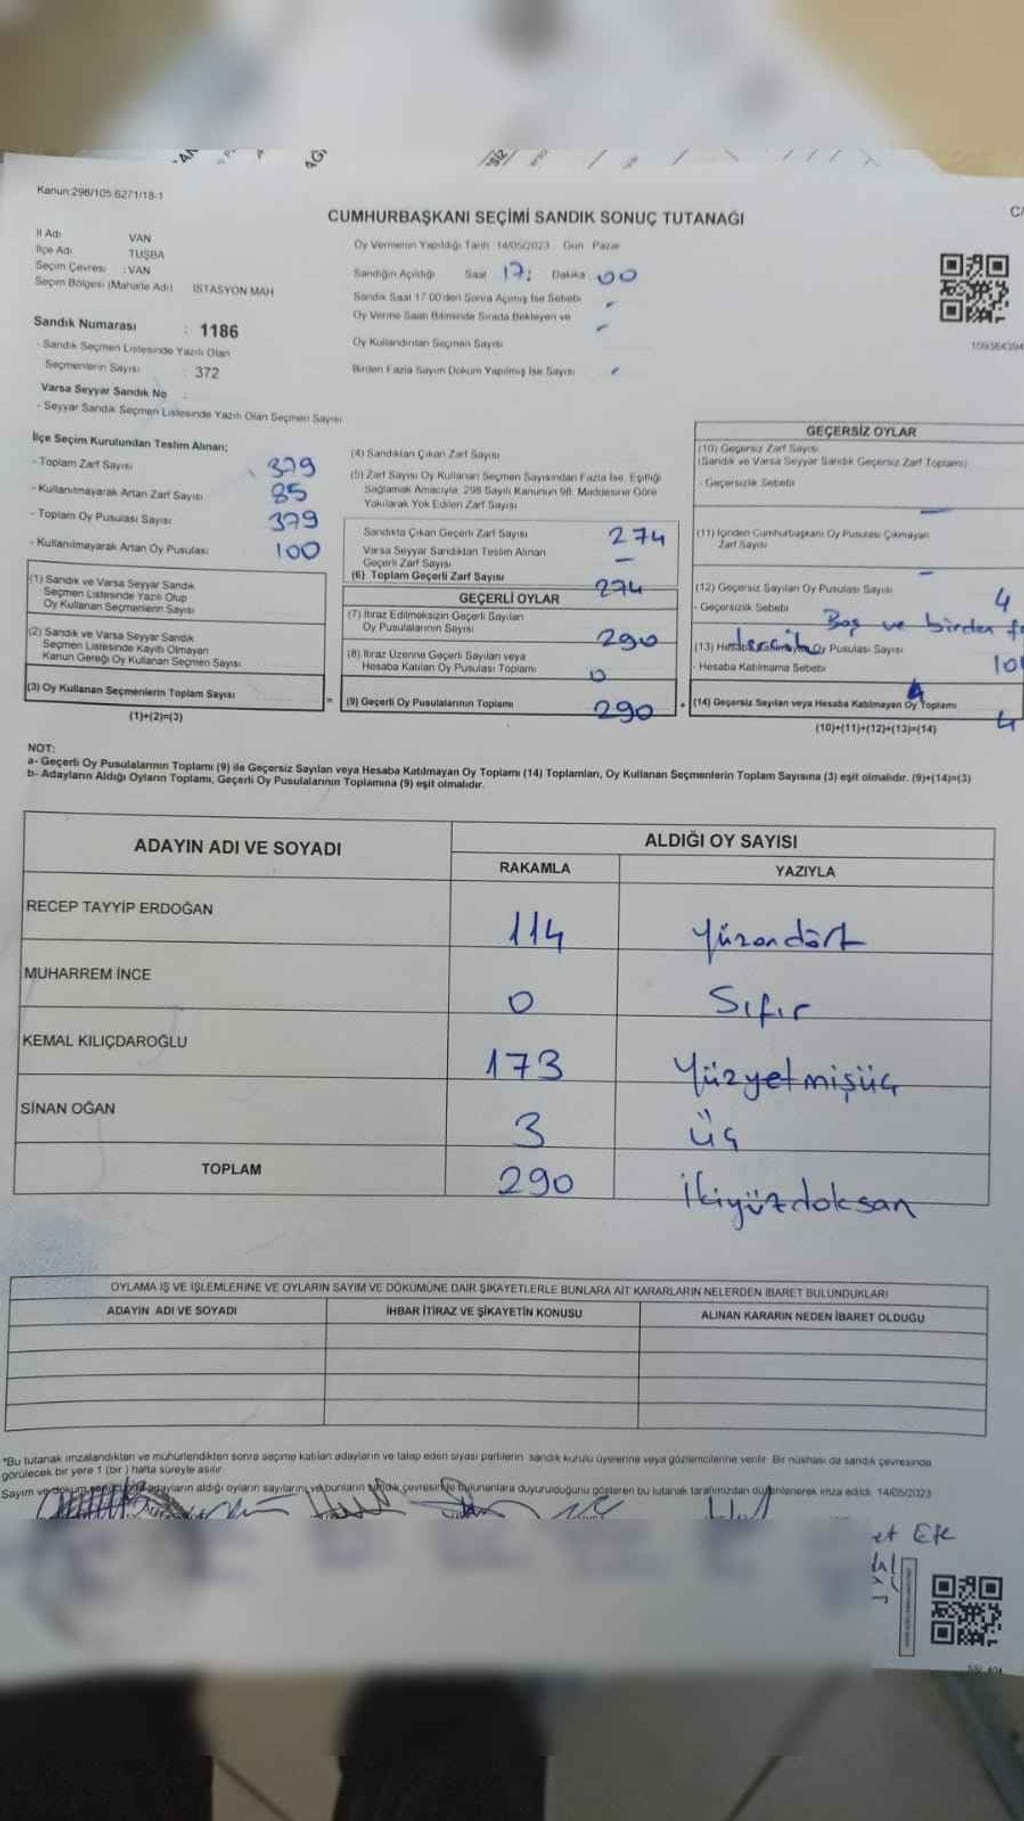 Kanun:298/105.6271/18-1
CUMHURBAŞKANI SEÇİMİ SANDIK SONUÇ TUTANAĞI
İl Adı VAN
İlçe Adı TUŞBA
Seçim Çevresi :VAN
Seçim Bölgesi (Mahalle Adı) İSTASYON MAH
Sandık Numarası : 1186
- Sandık Seçmen Listesinde Yazılı Olan
Seçmenlerin Sayısı : 372
Varsa Seyyar Sandık No :
- Seyyar Sandık Seçmen Listesinde Yazılı Olan Seçmen Sayısı
Oy Vermenin Yapıldığı Tarih 14/05/2023 Gün Pazar
Sandığın Açıldığı Saat 17: Dakika 00
Sandık Saat 17.00'den Sonra Açımış İse Sebebi -
Oy Verme Saati Bitiminde Sırada Bekleyen ve
Oy Kullandırılan Seçmen Sayısı -
Birden Fazla Sayım Döküm Yapılmış İse Sayısı -
İlçe Seçim Kurulundan Teslim Alınan;
- Toplam Zarf Sayısı 379
- Kullanılmayarak Artan Zarf Sayısı 85
- Toplam Oy Pusulası Sayısı 379
- Kullanılmayarak Artan Oy Pusulası 100
(1) Sandık ve Varsa Seyyar Sandık
Seçmen Listesinde Yazılı Olup
Oy Kullanan Seçmenlerin Sayısı
(2) Sandık ve Varsa Seyyar Sandık
Seçmen Listesinde Kayıtlı Olmayan
Kanun Gereği Oy Kullanan Seçmen Sayısı
(3) Oy Kullanan Seçmenlerin Toplam Sayısı
(1)+(2)=(3)
=
(4) Sandıktan Çıkan Zarf Sayısı
(5) Zarf Sayısı Oy Kullanan Seçmen Sayısından Fazla İse, Eşitliği
Sağlamak Amacıyla, 298 Sayılı Kanunun 98. Maddesine Göre
Yakılarak Yok Edilen Zarf Sayısı
Sandıkta Çıkan Geçerli Zarf Sayısı 274
Varsa Seyyar Sandıktan Teslim Alınan
Geçerli Zarf Sayısı -
(6) Toplam Geçerli Zarf Sayısı 274
GEÇERLİ OYLAR
(7) İtiraz Edilmeksizin Geçerli Sayılan
Oy Pusulalarının Sayısı 290
(8) İtiraz Üzerine Geçerli Sayılan veya
Hesaba Katılan Oy Pusulası Toplamı 0
(9) Geçerli Oy Pusulalarının Toplamı 290
+
GEÇERSİZ OYLAR
(10) Geçersiz Zarf Sayısı
(Sandık ve Varsa Seyyar Sandık Geçersiz Zarf Toplamı)
- Geçersizlik Sebebi
-
(11) İçinden Cumhurbaşkanı Oy Pusulası Çıkmayan
Zarf Sayısı
-
(12) Geçersiz Sayılan Oy Pusulası Sayısı 4
- Geçersizlik Sebebi Boş ve birden
tercih
(13) Hesaba Katılmayan Oy Pusulası Sayısı
- Hesaba Katılmama Sebebi
(14) Geçersiz Sayılan veya Hesaba Katılmayan Oy Toplamı 4
(10)+(11)+(12)+(13)=(14)
NOT:
a- Geçerli Oy Pusulalarının Toplamı (9) ile Geçersiz Sayılan veya Hesaba Katılmayan Oy Toplamı (14) Toplamları, Oy Kullanan Seçmenlerin Toplam Sayısına (3) eşit olmalıdır. (9)+(14)=(3)
b- Adayların Aldığı Oyların Toplamı, Geçerli Oy Pusulalarının Toplamına (9) eşit olmalıdır.
ADAYIN ADI VE SOYADI
ALDIĞI OY SAYISI
RAKAMLA YAZIYLA
RECEP TAYYİP ERDOĞAN 114 Yüzondört
MUHARREM İNCE 0 Sıfır
KEMAL KILIÇDAROĞLU 173 Yüzyetmişüç
SİNAN OĞAN 3 üç
TOPLAM 290 ikiyüzdoksan
OYLAMA İŞ VE İŞLEMLERİNE VE OYLARIN SAYIM VE DÖKÜMÜNE DAİR ŞİKAYETLERLE BUNLARA AİT KARARLARIN NELERDEN İBARET BULUNDUKLARI
ADAYIN ADI VE SOYADI İHBAR İTİRAZ VE ŞİKAYETİN KONUSU ALINAN KARARIN NEDEN İBARET OLDUĞU
*Bu tutanak imzalandıktan ve mühürlendikten sonra seçime katılan adayların ve talep eden siyasi partilerin sandık kurulu üyelerine veya gözlemcilerine verilir. Bir nüshası da sandık çevresinde
görülecek bir yere 1 (bir) hafta süreyle asılır.
Sayım ve döküm sonucu adayların aldığı oyların sayılarını ve bunların sandık çevresinde bulunanlara duyurulduğunu gösteren bu tutanak tarafımızdan düzenlenerek imza edildi. 14/05/2023
et Efe